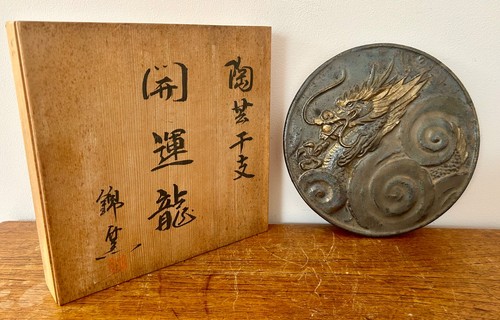 陶芸干支
開運龍
錦窯